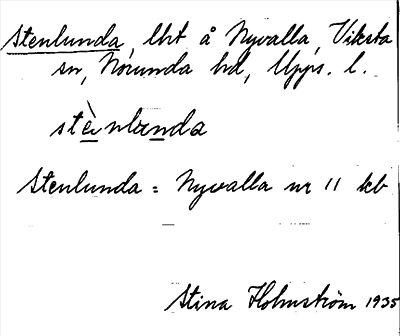 Stenlunda, lht å Nyvalla, Viksta
sn, Norunda hd, Upps. l.
stènlunda
Stenlunda = Nyvalla nr 11 kb
Stina Holmström 1935